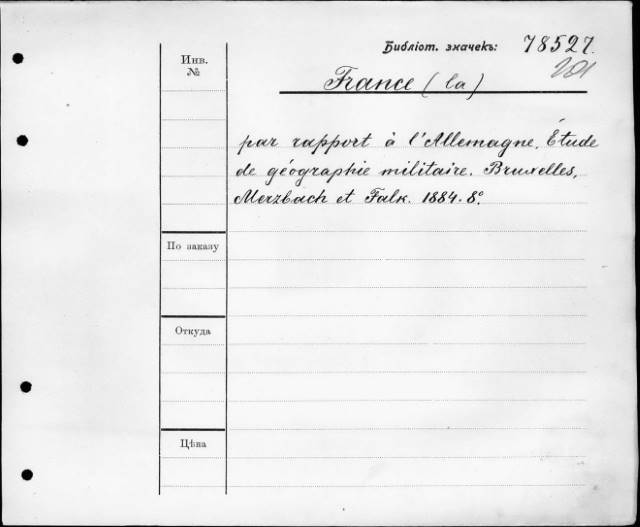 Библіот. значекъ: 78527.
201
Инв.
№
France (la)
par rapport à l'Allemagne. Étude
de géographie militaire. Bruxelles,
Merzbach et Falk. 1884. 8º.
По заказу
Откуда
Цѣна